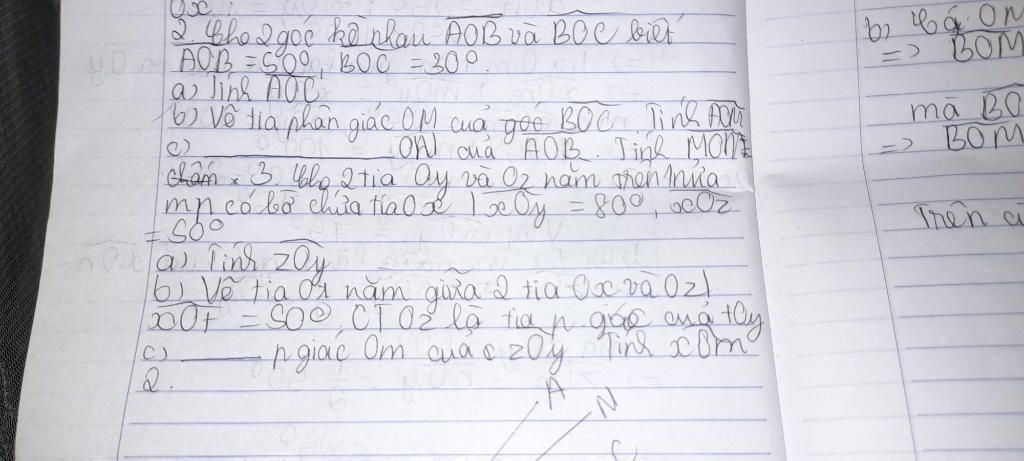 2. Cho 2 góc kề nhau AOB và BOC biết
AOB = 50°, BOC = 30°.
a) Tính AOC
b) Vẽ tia phân giác OM của góc BOC. Tính AOM
c) ________ ON của AOB. Tính MON
3. Cho 2 tia Oy và Oz nằm trên 1 nửa
mp có bờ chứa tia Ox | xOy = 80°, xOz
= 50°
a) Tính zOy
b) Vẽ tia Ot nằm giữa 2 tia Ox và Oz |
xOt = 50°, CT Oz là tia p. giác của tOy
c) ____ p giác Om của zOy. Tính xOm
2.
A
N
C
b) Có OM
=> BOM
mà BO
=> BOM
Trên